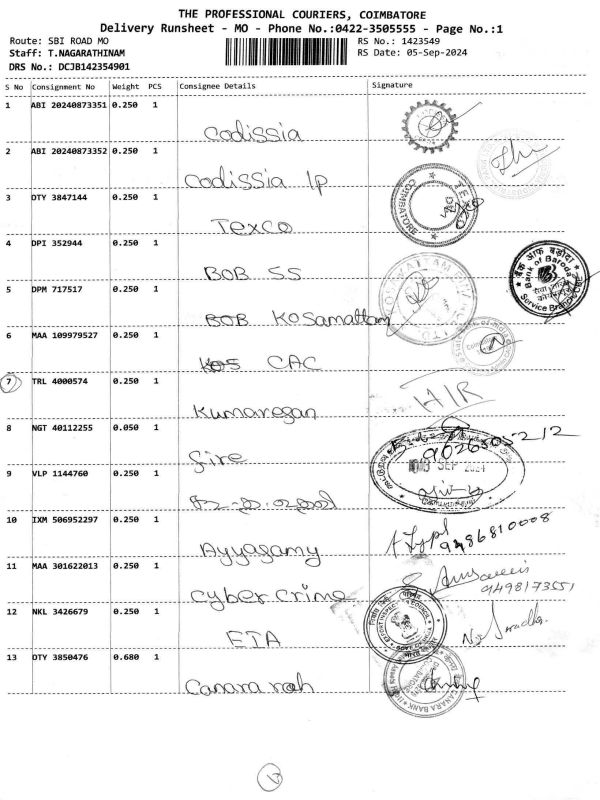 THE PROFESSIONAL COURIERS, COIMBATORE
Delivery Runsheet - MO - Phone No.:0422-3505555 - Page No.:1
Route: SBI ROAD MO
RS No.: 1423549
Staff: T.NAGARATHINAM
RS Date: 05-Sep-2024
DRS No.: DCJB142354901
S No Consignment No Weight PCS Consignee Details Signature
1 ABI 20240873351 0.250 1
Codissia
2 ABI 20240873352 0.250 1
Codissia IP
3 DTY 3847144 0.250 1
Texco
COIMBATORE
4 DPI 352944 0.250 1
BOB SS
बैंक ऑफ़ बड़ौदा
Bank of Baroda
Service Branch
5 DPM 717517 0.250 1
BOB Kosamattam
6 MAA 109979527 0.250 1
CAC
7 TRL 4000574 0.250 1
Kumaregan
HIR
8 NGT 40112255 0.050 1
fire
9626305212
SEP 2024
9 VLP 1144760 0.250 1
10 IXM 506952297 0.250 1
Ayyasamy
9486810008
11 MAA 301622013 0.250 1
Cyber Crime
9498173551
12 NKL 3426679 0.250 1
EIA
13 DTY 3850476 0.680 1
Canara
CANARA BANK